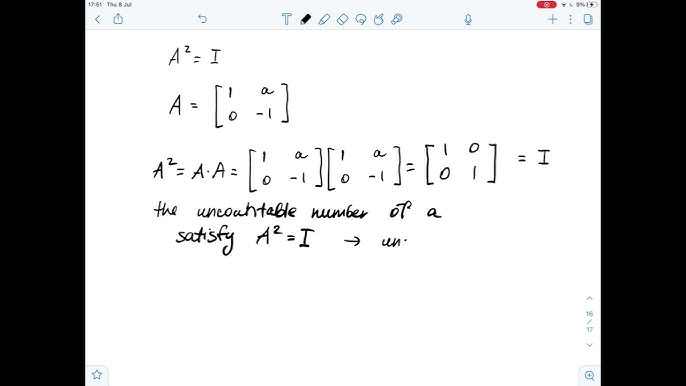 17:51 Thu 8 Jul 9%
A² = I
A = [1 a
0 -1]
A² = A·A = [1 a [1 a = [1 0 = I
0 -1] 0 -1] 0 1]
the uncountable number of a
satisfy A² = I → un.
16
/
17